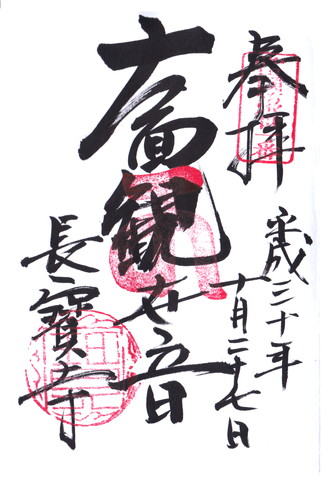 奉拝
平成三十年
十月二十七日
十一面観世音
長寳寺